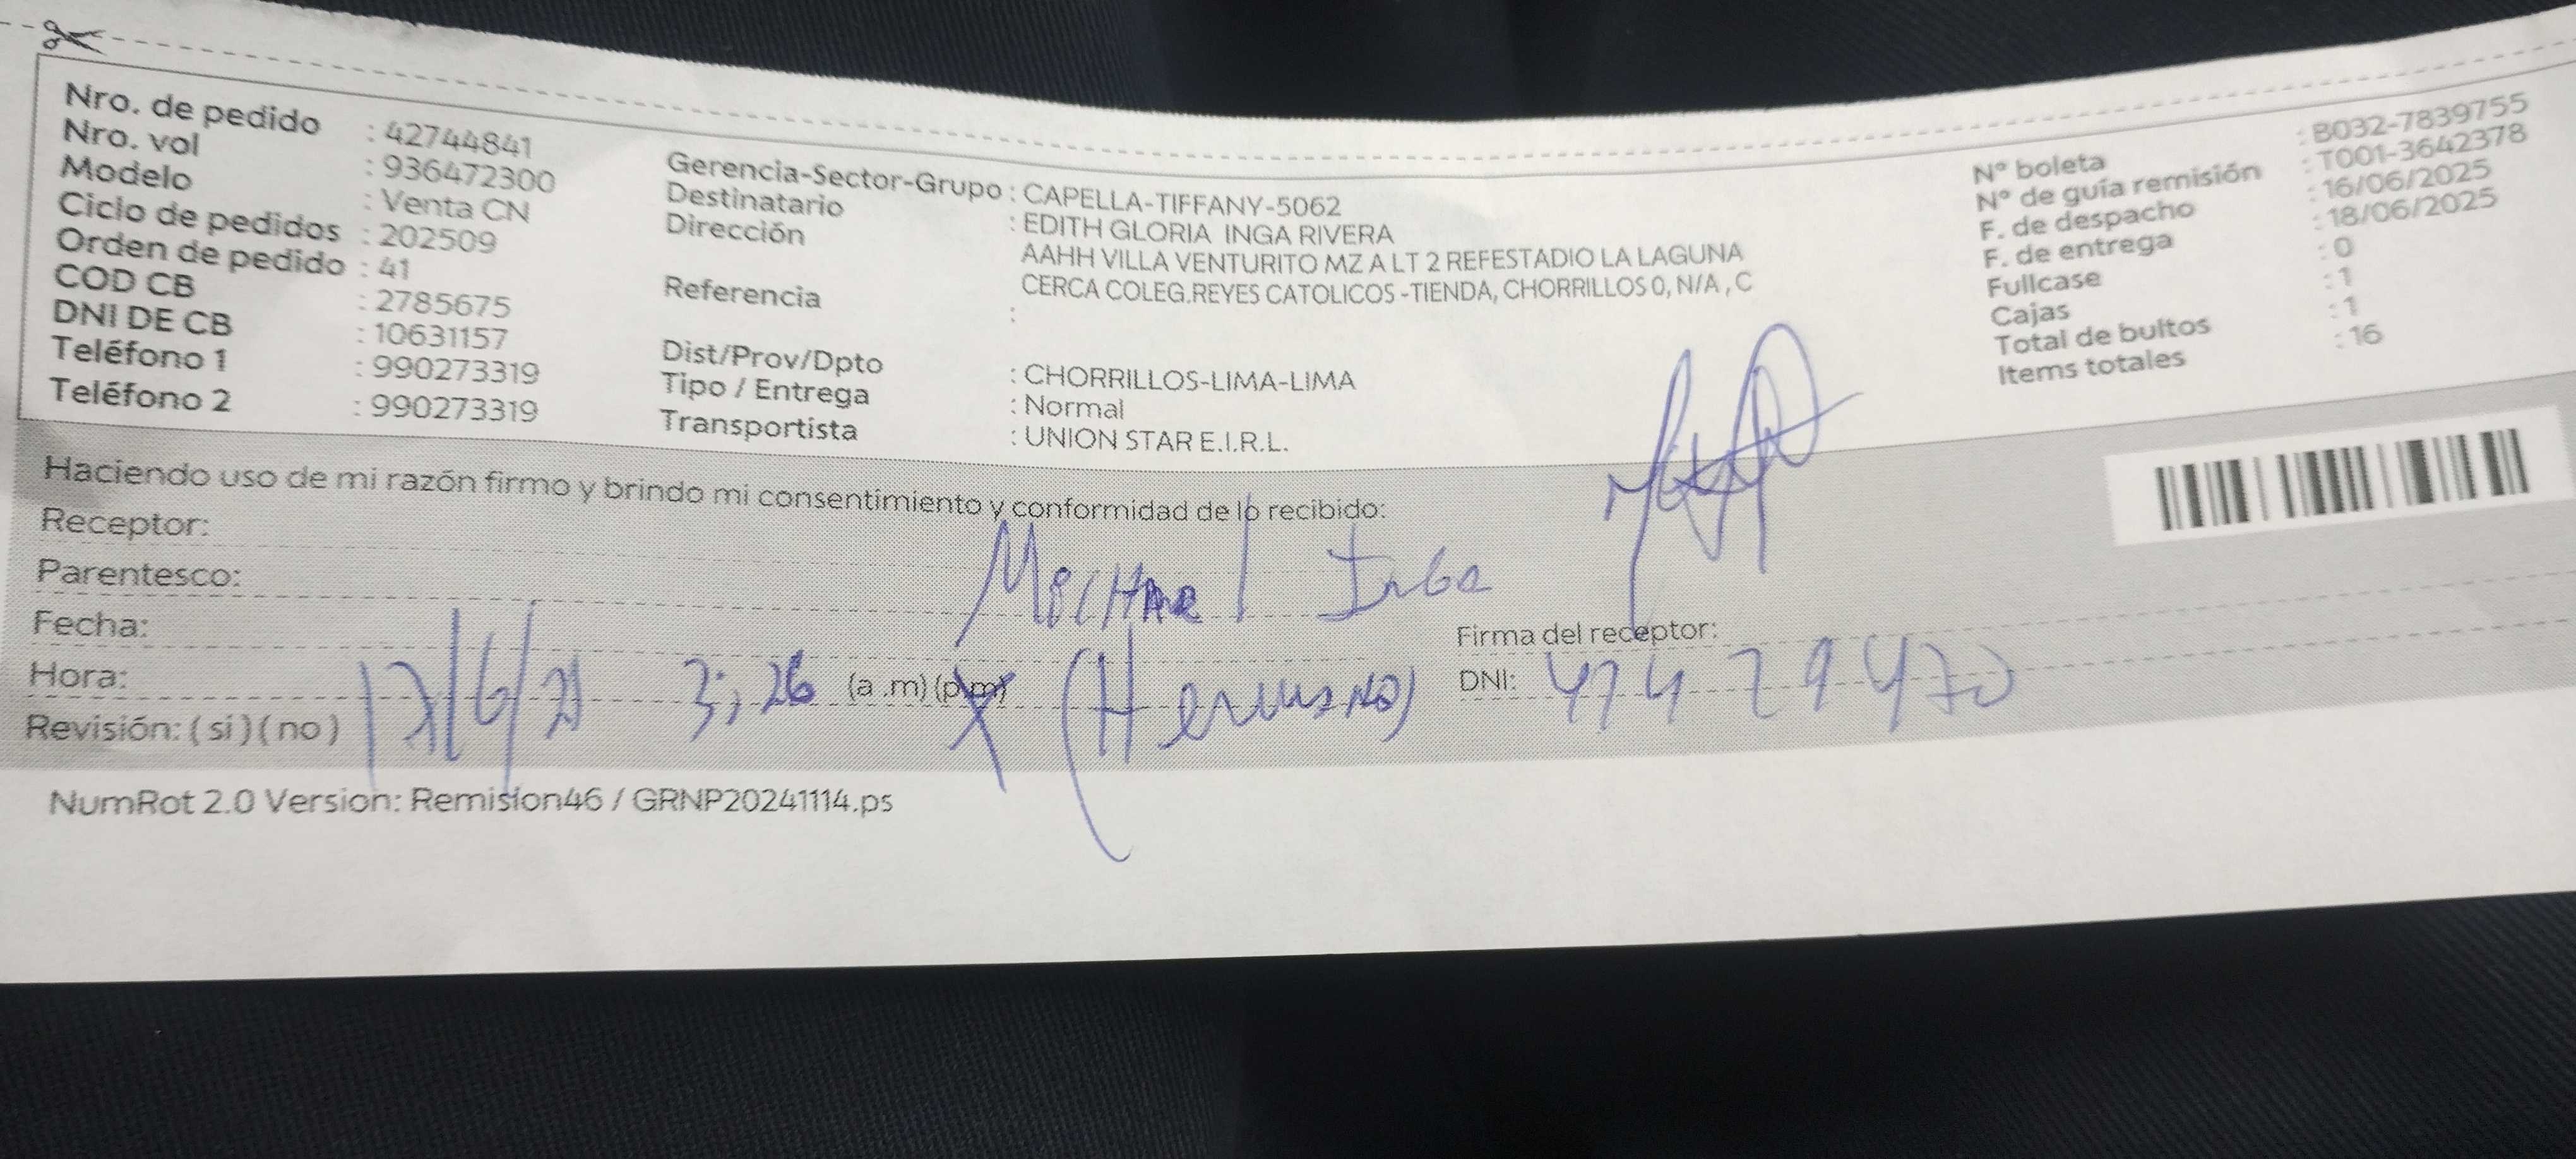 Nro. de pedido : 42744841
Nro. vol : 936472300
Modelo : Venta CN
Ciclo de pedidos : 202509
Orden de pedido : 41
COD CB : 2785675
DNI DE CB : 10631157
Teléfono 1 : 990273319
Teléfono 2 : 990273319
Gerencia-Sector-Grupo : CAPELLA-TIFFANY-5062
Destinatario : EDITH GLORIA INGA RIVERA
Dirección AAHH VILLA VENTURITO MZ A LT 2 REFESTADIO LA LAGUNA
CERCA COLEG.REYES CATOLICOS -TIENDA, CHORRILLOS 0, N/A , C
Referencia :
Dist/Prov/Dpto : CHORRILLOS-LIMA-LIMA
Tipo / Entrega : Normal
Transportista : UNION STAR E.I.R.L.
N° boleta : B032-7839755
N° de guía remisión : T001-3642378
F. de despacho : 16/06/2025
F. de entrega : 18/06/2025
Fullcase : 0
Cajas : 1
Total de bultos : 1
Items totales : 16
Haciendo uso de mi razón firmo y brindo mi consentimiento y conformidad de lo recibido:
Receptor: Michael Inga
Parentesco: (Hermano)
Fecha: 17/6/
Hora: 3:26 (a .m) (p.m)
Revisión: ( si ) ( no )
Firma del receptor:
DNI: 47429470
NumRot 2.0 Version: Remision46 / GRNP20241114.ps